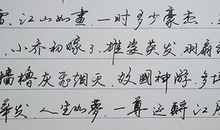 雪,江山如畫,一时多少豪杰.
小乔初嫁了,雄姿英发.羽扇
樯橹灰飞烟灭.故國神游,多
华发.人生如夢,一尊还酹江月